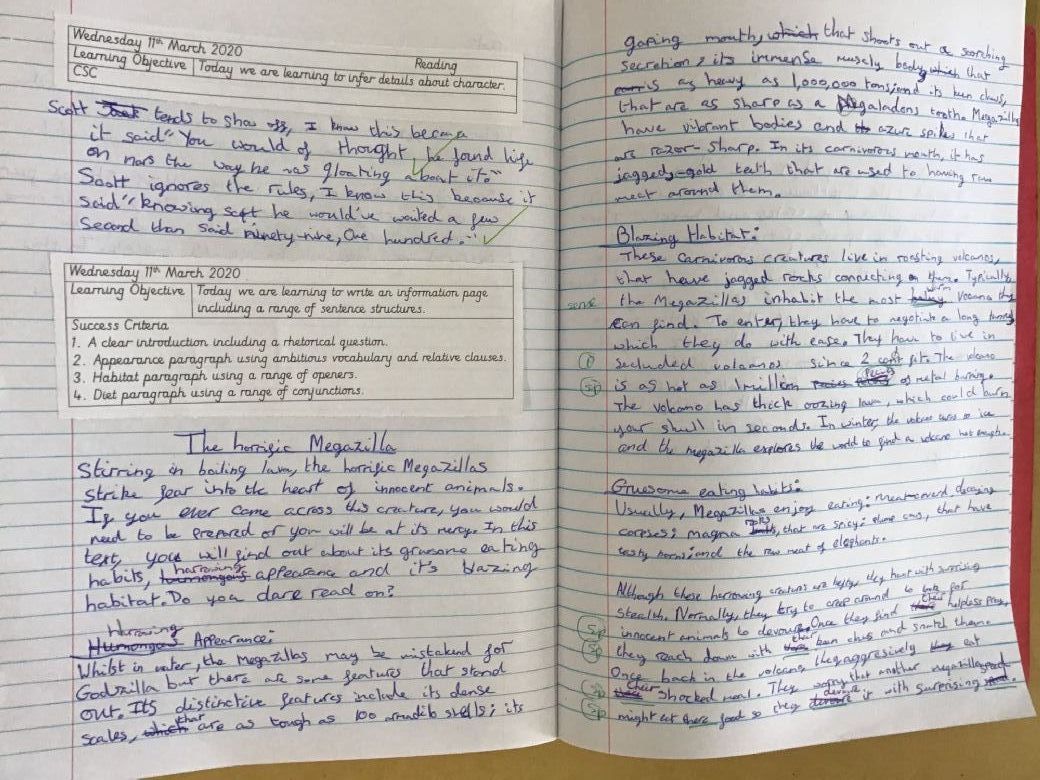 Wednesday 11th March 2020
Reading
Learning Objective Today we are learning to infer details about character.
CSC
Scott tends to show off, I know this because
it said "You would of thought he found life
on mars the way he was gloating about it."
Scott ignores the rules, I know this because it
said "knowing scott he would've waited a few
second than said ninety-nine, One hundred."
Wednesday 11th March 2020
Learning Objective Today we are learning to write an information page
including a range of sentence structures.
Success Criteria
1. A clear introduction including a rhetorical question.
2. Appearance paragraph using ambitious vocabulary and relative clauses.
3. Habitat paragraph using a range of openers.
4. Diet paragraph using a range of conjunctions.
The horrific Megazilla
Stirring in boiling lava, the horrific Megazillas
strike fear into the heart of innocent animals.
If you ever come across this creature, you would
need to be prepared or you will be at its mercy. In this
text, you will find out about its grusome eating
habits, harrowing appearance and it's blazing
habitat. Do you dare read on?
Appearance:
Whilst in water, the Megazillas may be mistakend for
Godzilla but there are some features that stand
out. Its distinctive features include its dense
scales, that are as tough as 100 shells; its
gaping mouth, that shoots out a scorching
secretion; its immense body that
is as heavy as 1,000,000 tons; and its
that are as sharp as a Megaladons teeth. Megazillas
have vibrant bodies and azure spikes that
are razor-sharp. In its carnivorous mouth, it has
jagged-gold teeth that are used to having raw
meat around them.
Blazing Habitat:
These Carnivorous creatures live in roasting volcanos,
that have jagged rocks connecting on them. Typically,
the Megazillas inhabit the most warm they
can find. To enter, they have to negotiate a long
which they do with ease. They have to live in
secluded volcanos since 2 cant fit. The volcano
sp
is as hot as 1 million of metal burning.
The volcano has thick oozing lava, which could burn
your skull in seconds. In winter, the volcano turns to ice
and the megazilla explores the world to find a volcano hot enough.
Gruesome eating habits:
Usually, Megazillas enjoy eating: decaying
corpses; magma rocks, that are spicy; that have
tasty and the raw meat of elephants.
Although these harrowing creatures are hefty, they hunt with surprising
stealth. Normally, they try to creep around to look for
sp
innocent animals to devour. Once they find their helpless prey,
sp
they reach down with their claws and snatch them.
Once back in the volcano they aggresively eat
sp
their shocked meal. They worry that another megazilla
sp
might eat there food so they devour it with surprising